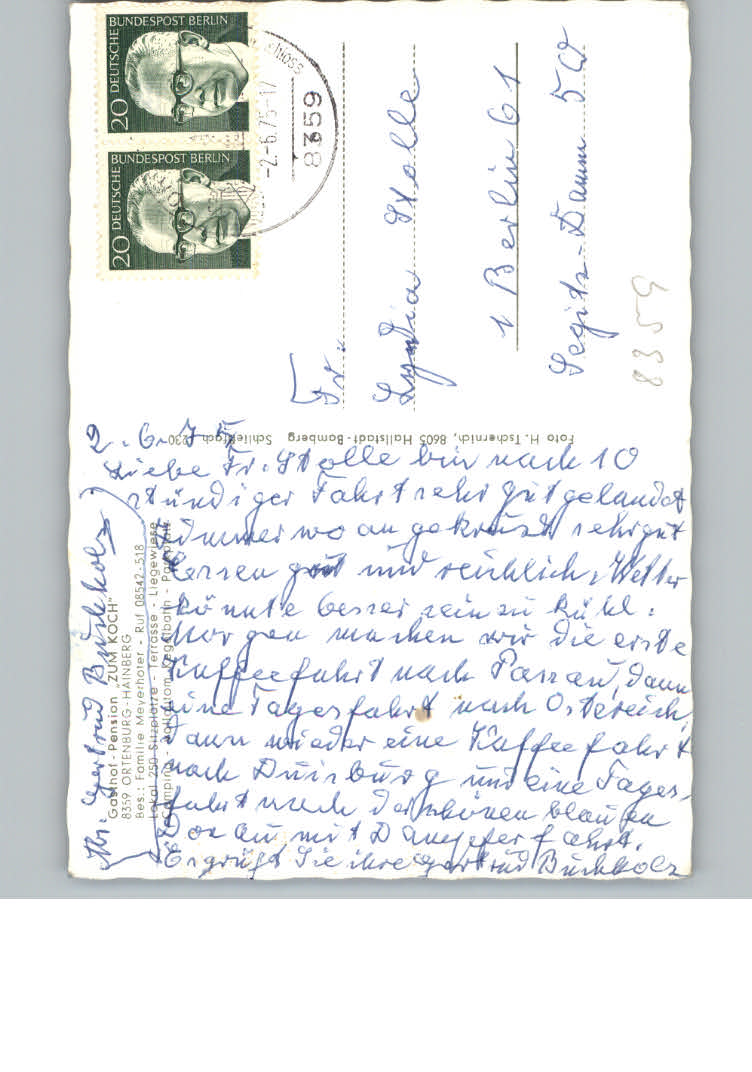 DEUTSCHE BUNDESPOST BERLIN
20
DEUTSCHE BUNDESPOST BERLIN
20
8359
-2.-6.75-17
Fr.
Lydia Stolle
1 Berlin 61
Segitz-Damm 50
8359
Foto H. Tschernich, 8605 Hallstadt-Bamberg Schließfach 230
Gasthof-Pension „ZUM KOCH"
8359 ORTENBURG-HAINBERG
Bes.: Familie Meyerhofer · Ruf 08542-518
Lokal 250 Sitzplätze - Terrasse - Liegewiese
Camping - Vollautom. Kegelbahn -
2.-6.-75
Liebe Fr. Stolle bin nach 10
stündiger Fahrt sehr gut gelandet
Zimmer wo sehr gut
Essen gut und reichlich, Wetter
könnte besser sein zu kühl.
Morgen machen wir die erste
Kaffeefahrt nach Passau, dann
eine Tagesfahrt nach Östereich,
dann wieder eine Kaffeefahrt
nach Duisburg und eine Tages-
fahrt nach der schönen blauen
Donau mit Dampferfahrt.
Es grüßt Sie ihre Gertrud Buchholz
Abs. Gertrud Buchholz